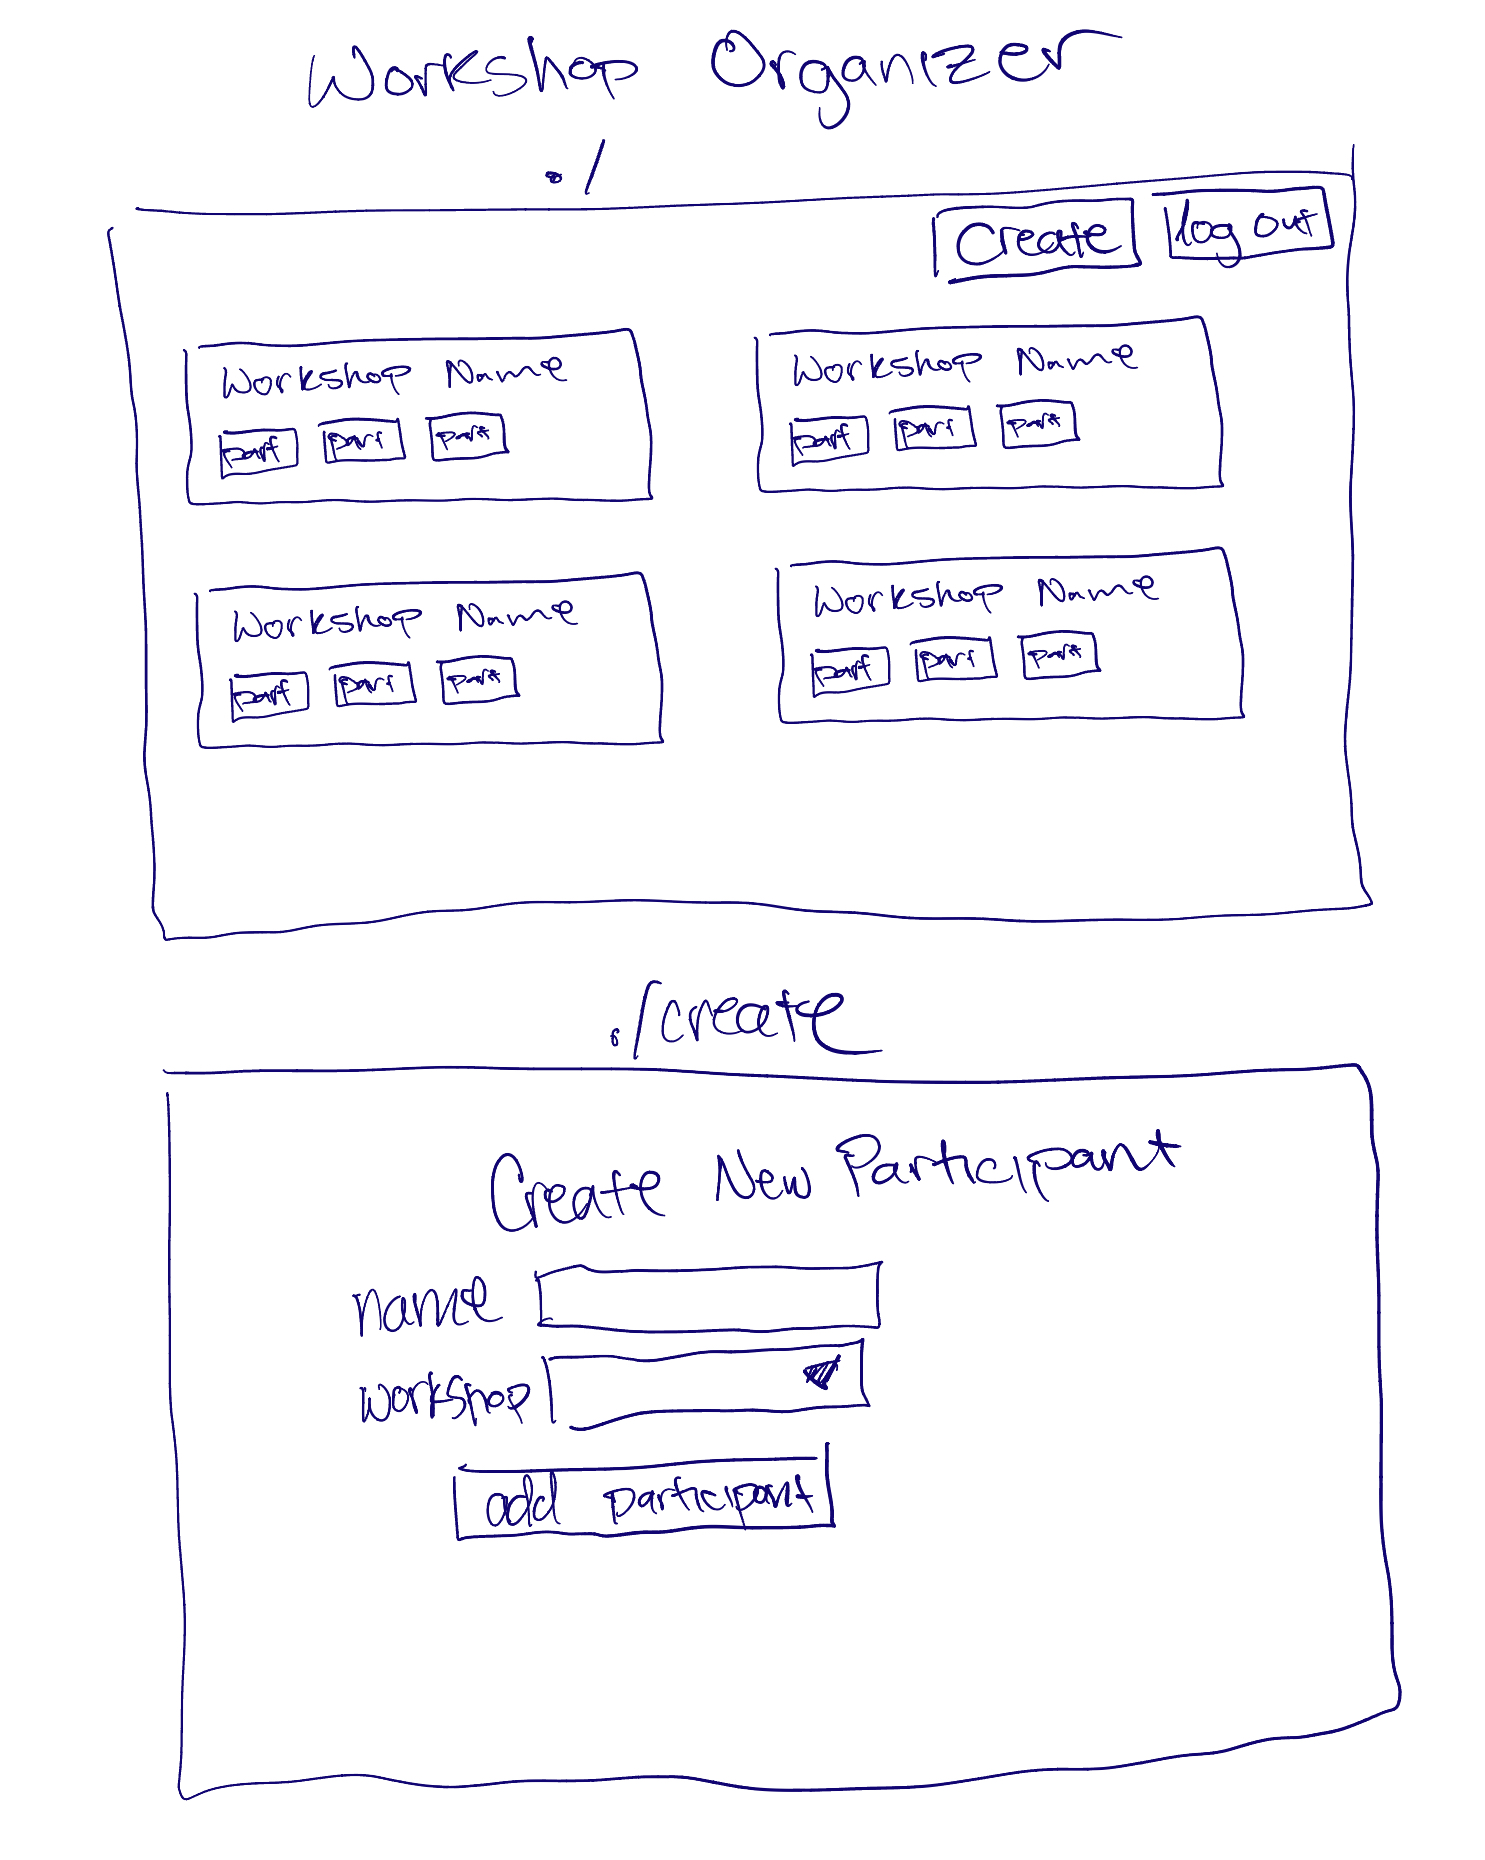 Workshop Organizer
./
Create log out
Workshop Name
part part part
Workshop Name
part part part
Workshop Name
part part part
Workshop Name
part part part
./create
Create New Participant
name
workshop
add participant